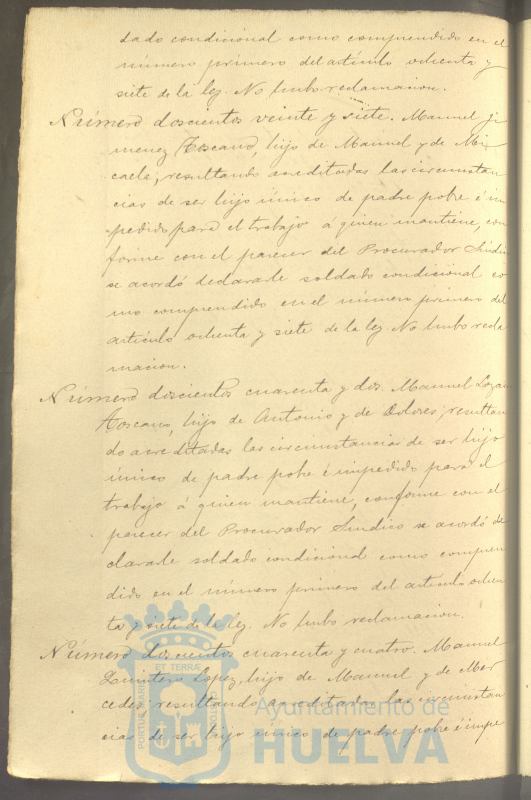 dado condicional como comprendido en el
número primero del artículo ochenta y
siete de la ley. No hubo reclamacion.
Número doscientos veinte y siete. Manuel Ji
menez Toscano, hijo de Manuel y de Mi
caela, resultando acreditadas las circunstan
cias de ser hijo único de padre pobre é im
pedido para el trabajo á quien mantiene, con
forme con el parecer del Procurador Sindico
se acordó declararle soldado condicional co
mo comprendido en el número primero del
artículo ochenta y siete de la ley. No hubo recla
macion.
Número doscientos cuarenta y dos. Manuel Lozano
Toscano, hijo de Antonio y de Dolores, resultan
do acreditadas las circunstancias de ser hijo
único de padre pobre é impedido para el
trabajo á quien mantiene, conforme con el
parecer del Procurador Sindico se acordó de
clararle soldado condicional como compren
dido en el número primero del artículo ochen
ta y siete de la ley. No hubo reclamacion.
Número doscientos cuarenta y cuatro. Manuel
Quintero Lopez, hijo de Manuel y de Mer
cedes, resultando acreditadas las circunstan
cias de ser hijo único de padre pobre é impe
PORTUS MARIS ET TERRÆ CUSTODIA
Ayuntamiento de
HUELVA